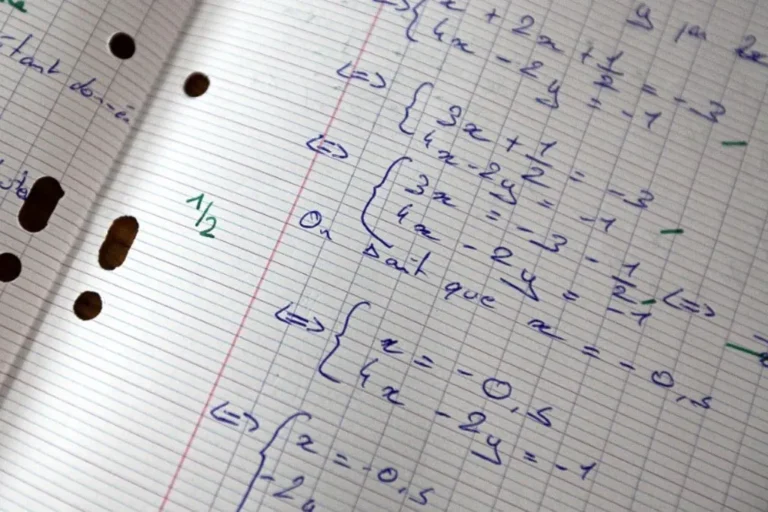 étant donné
1/2
y par 2x
<=> { x + 2x + 1/2 = -3
4x - 2y = -1
<=> { 3x + 1/2 = -3
4x - 2y = -1
<=> { 3x = -3 - 1/2 <=>
4x - 2y = -1
On sait que x = -0,5
<=> { x = -0,5
4x - 2y = -1
<=> { x = -0,5
-2y